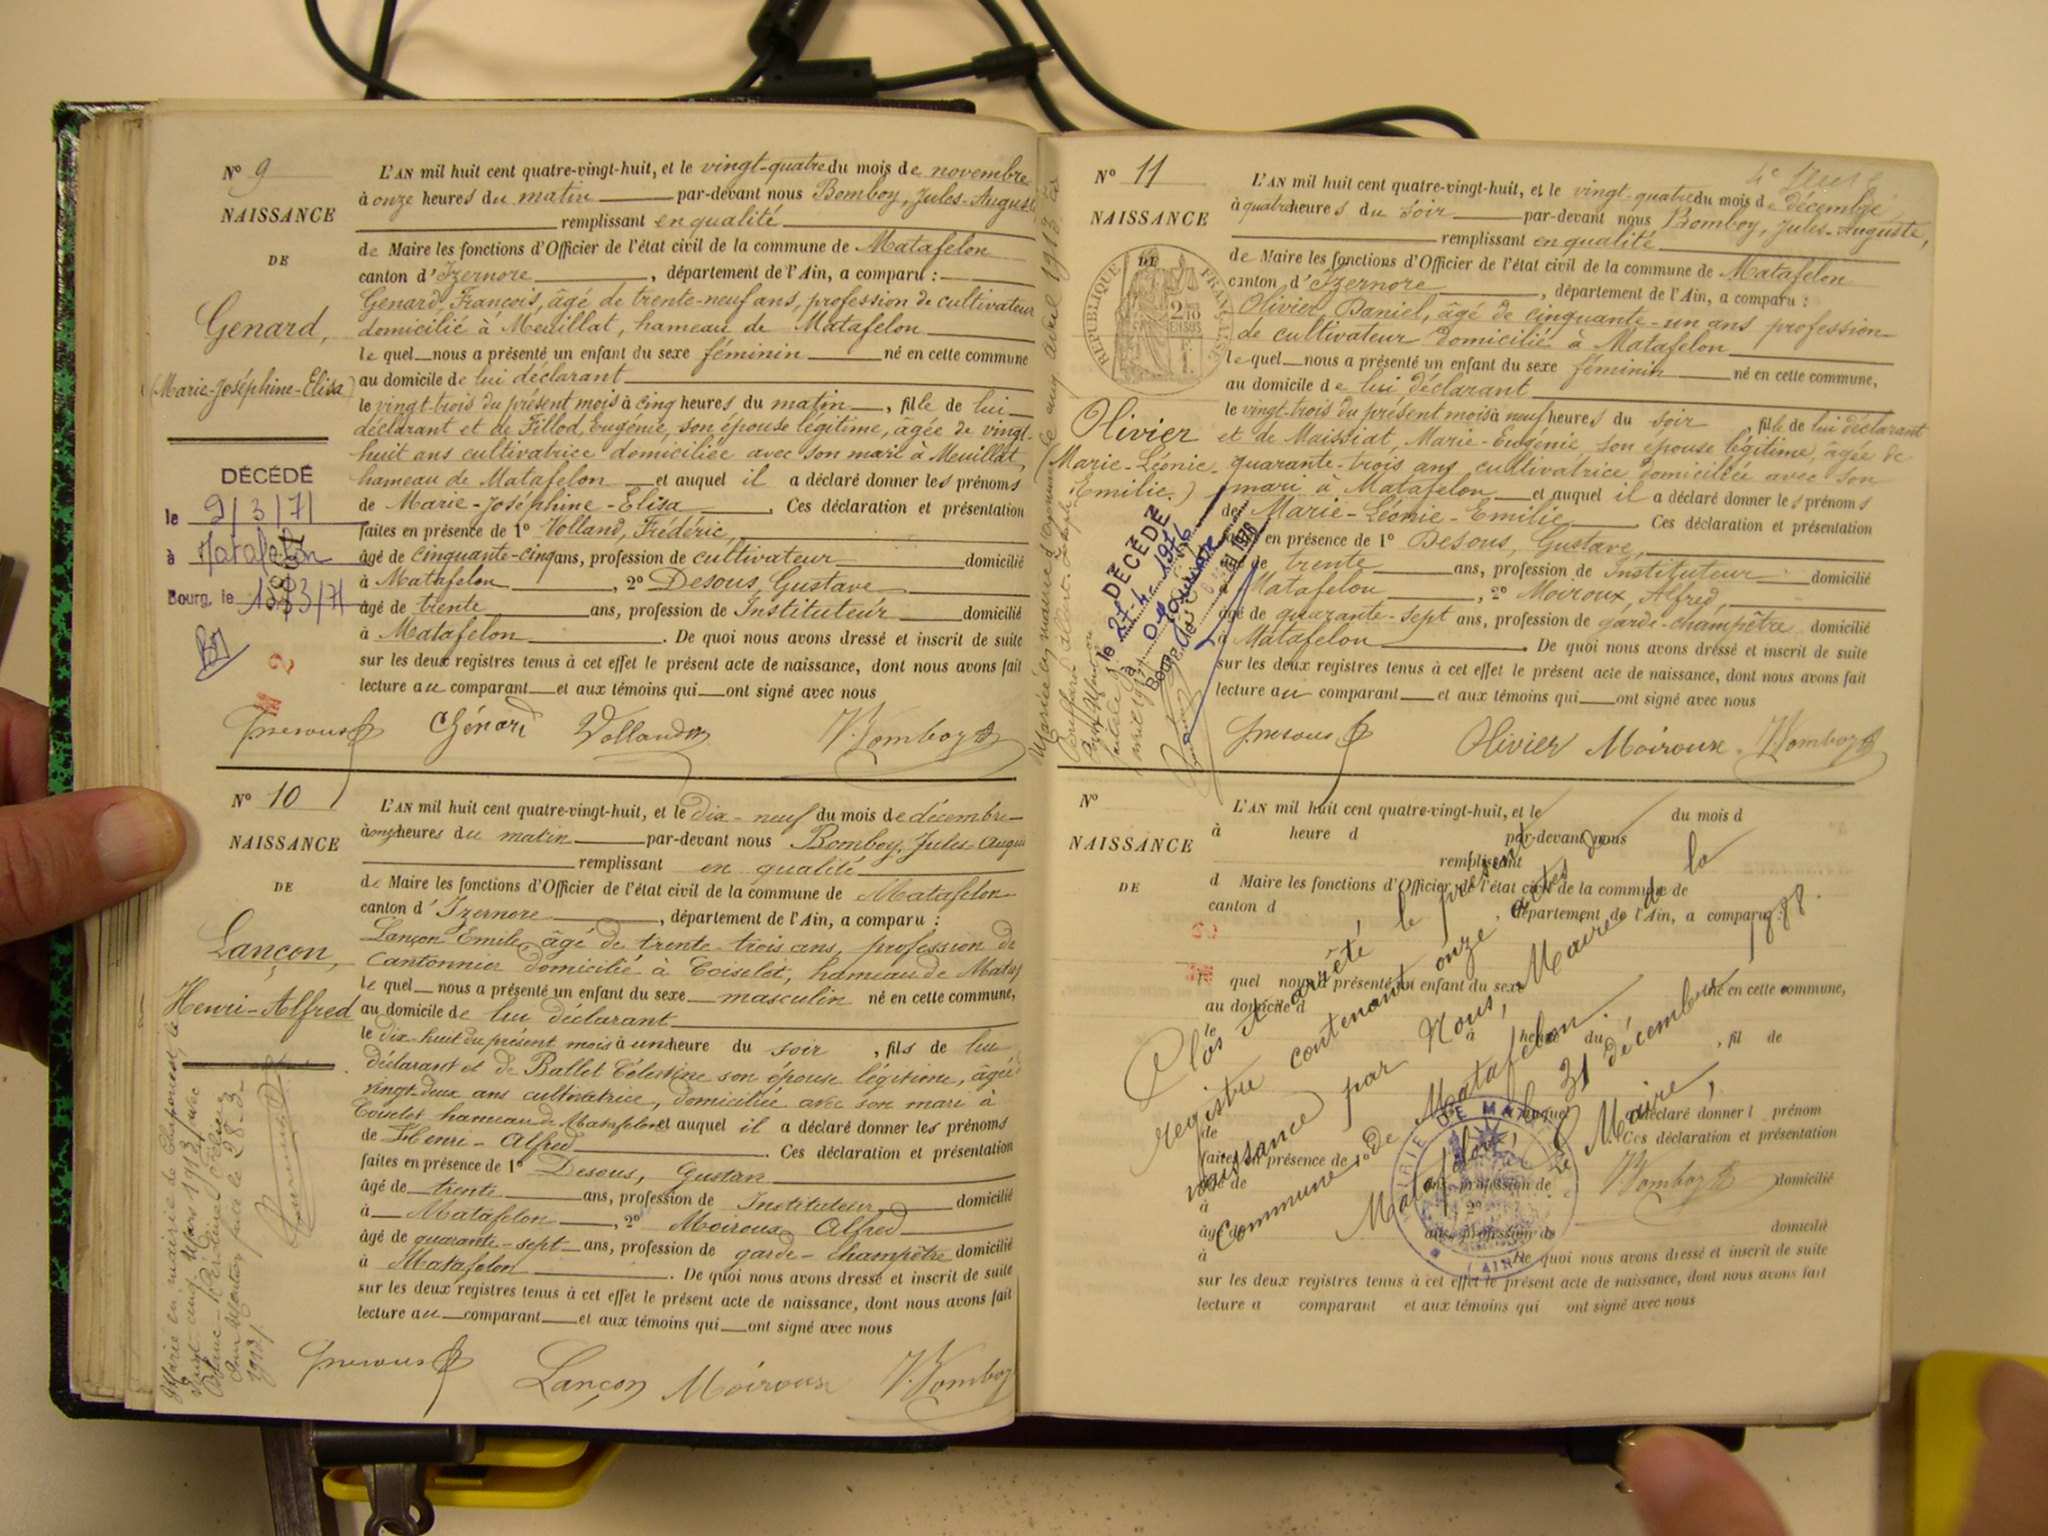 N° 9
NAISSANCE
DE
Genard,
(Marie-Joséphine-Elisa)
DÉCÉDÉ
le 9/3/71
à Matafelon
Bourg, le
L'AN mil huit cent quatre-vingt-huit, et le vingt-quatre du mois de novembre
à onze heures du matin par-devant nous Bomboy, Jules-Auguste
remplissant en qualité
de Maire les fonctions d'Officier de l'état civil de la commune de Matafelon
canton d'Izernore, département de l'Ain, a comparu :
Genard, François, âgé de trente-neuf ans, profession de cultivateur
domicilié à Meuillat, hameau de Matafelon
le quel nous a présenté un enfant du sexe féminin né en cette commune
au domicile de lui déclarant
le vingt-trois du présent mois à cinq heures du matin, fille de lui
déclarant et de Fillod, Eugénie, son épouse légitime, âgée de vingt-
huit ans cultivatrice domiciliée avec son mari à Meuillat,
hameau de Matafelon et auquel il a déclaré donner les prénoms
de Marie-Joséphine-Elisa. Ces déclaration et présentation
faites en présence de 1° Volland, Frédéric,
âgé de cinquante-cinq ans, profession de cultivateur domicilié
à Matafelon, 2° Desous, Gustave
âgé de trente ans, profession de Instituteur domicilié
à Matafelon. De quoi nous avons dressé et inscrit de suite
sur les deux registres tenus à cet effet le présent acte de naissance, dont nous avons fait
lecture au comparant et aux témoins qui ont signé avec nous
Desous Génard Volland J. Bomboy
N° 10
NAISSANCE
DE
Lançon,
Henri-Alfred
Marié en mairie de
vingt-cinq Mars 1913 avec
1913/
L'AN mil huit cent quatre-vingt-huit, et le dix-neuf du mois de décembre
à onze heures du matin par-devant nous Bomboy, Jules-Augus
remplissant en qualité
de Maire les fonctions d'Officier de l'état civil de la commune de Matafelon
canton d'Izernore, département de l'Ain, a comparu :
Lançon Emile, âgé de trente-trois ans, profession de
Cantonnier domicilié à Coiselet, hameau de Mataf
le quel nous a présenté un enfant du sexe masculin né en cette commune,
au domicile de lui déclarant
le dix-huit du présent mois à une heure du soir, fils de lui
déclarant et de Ballet Célestine son épouse légitime, âgée
vingt-deux ans cultivatrice, domiciliée avec son mari à
Coiselet hameau de Matafelon et auquel il a déclaré donner les prénoms
de Henri-Alfred. Ces déclaration et présentation
faites en présence de 1° Desous, Gustave
âgé de trente ans, profession de Instituteur domicilié
à Matafelon, 2° Moiroux Alfred
âgé de quarante-sept ans, profession de garde-champêtre domicilié
à Matafelon. De quoi nous avons dressé et inscrit de suite
sur les deux registres tenus à cet effet le présent acte de naissance, dont nous avons fait
lecture au comparant et aux témoins qui ont signé avec nous
Desous Lançon Moiroux J. Bomboy
N° 11
NAISSANCE
DE
RÉPUBLIQUE FRANÇAISE
Olivier
Marie-Léonie-
Emilie.)
DÉCÉDÉ
le 27-4-1976
à Oyonnax
Mariée en mairie d'Oyonnax le cinq avril 1913
L'AN mil huit cent quatre-vingt-huit, et le vingt-quatre du mois de décembre
à quatre heures du soir par-devant nous Bomboy, Jules-Auguste,
remplissant en qualité
de Maire les fonctions d'Officier de l'état civil de la commune de Matafelon
canton d'Izernore, département de l'Ain, a comparu :
Olivier, Daniel, âgé de cinquante-un ans profession
de cultivateur domicilié à Matafelon
le quel nous a présenté un enfant du sexe féminin né en cette commune,
au domicile de lui déclarant
le vingt-trois du présent mois à neuf heures du soir, fille de lui déclarant
et de Maissiat, Marie-Eugénie, son épouse légitime, âgée de
quarante-trois ans cultivatrice domiciliée avec son
mari à Matafelon et auquel il a déclaré donner les prénoms
de Marie-Léonie-Emilie. Ces déclaration et présentation
en présence de 1° Desous, Gustave,
de trente ans, profession de Instituteur domicilié
Matafelon, 2° Moiroux, Alfred,
âgé de quarante-sept ans, profession de garde-champêtre domicilié
à Matafelon. De quoi nous avons dressé et inscrit de suite
sur les deux registres tenus à cet effet le présent acte de naissance, dont nous avons fait
lecture au comparant et aux témoins qui ont signé avec nous
Desous Olivier Moiroux J. Bomboy
N°
NAISSANCE
DE
L'AN mil huit cent quatre-vingt-huit, et le du mois d
à heure d par-devant nous
remplissant
d Maire les fonctions d'Officier de l'état civil de la commune de
canton d département de l'Ain, a comparu :
le quel nous a présenté un enfant du sexe né en cette commune,
au domicile d
le à heure du, fil de
et auquel a déclaré donner l prénom
de Ces déclaration et présentation
faites en présence de 1°
âgé de ans, profession de domicilié
à 2°
âgé de ans, profession de domicilié
à De quoi nous avons dressé et inscrit de suite
sur les deux registres tenus à cet effet le présent acte de naissance, dont nous avons fait
lecture a comparant et aux témoins qui ont signé avec nous
Clos et arrêté le présent
registre contenant onze actes de
naissance par Nous, Maire de la
Commune de Matafelon.
Matafelon, le 31 décembre 1888.
Le Maire,
J. Bomboy
MAIRIE DE MATAFELON
(AIN)